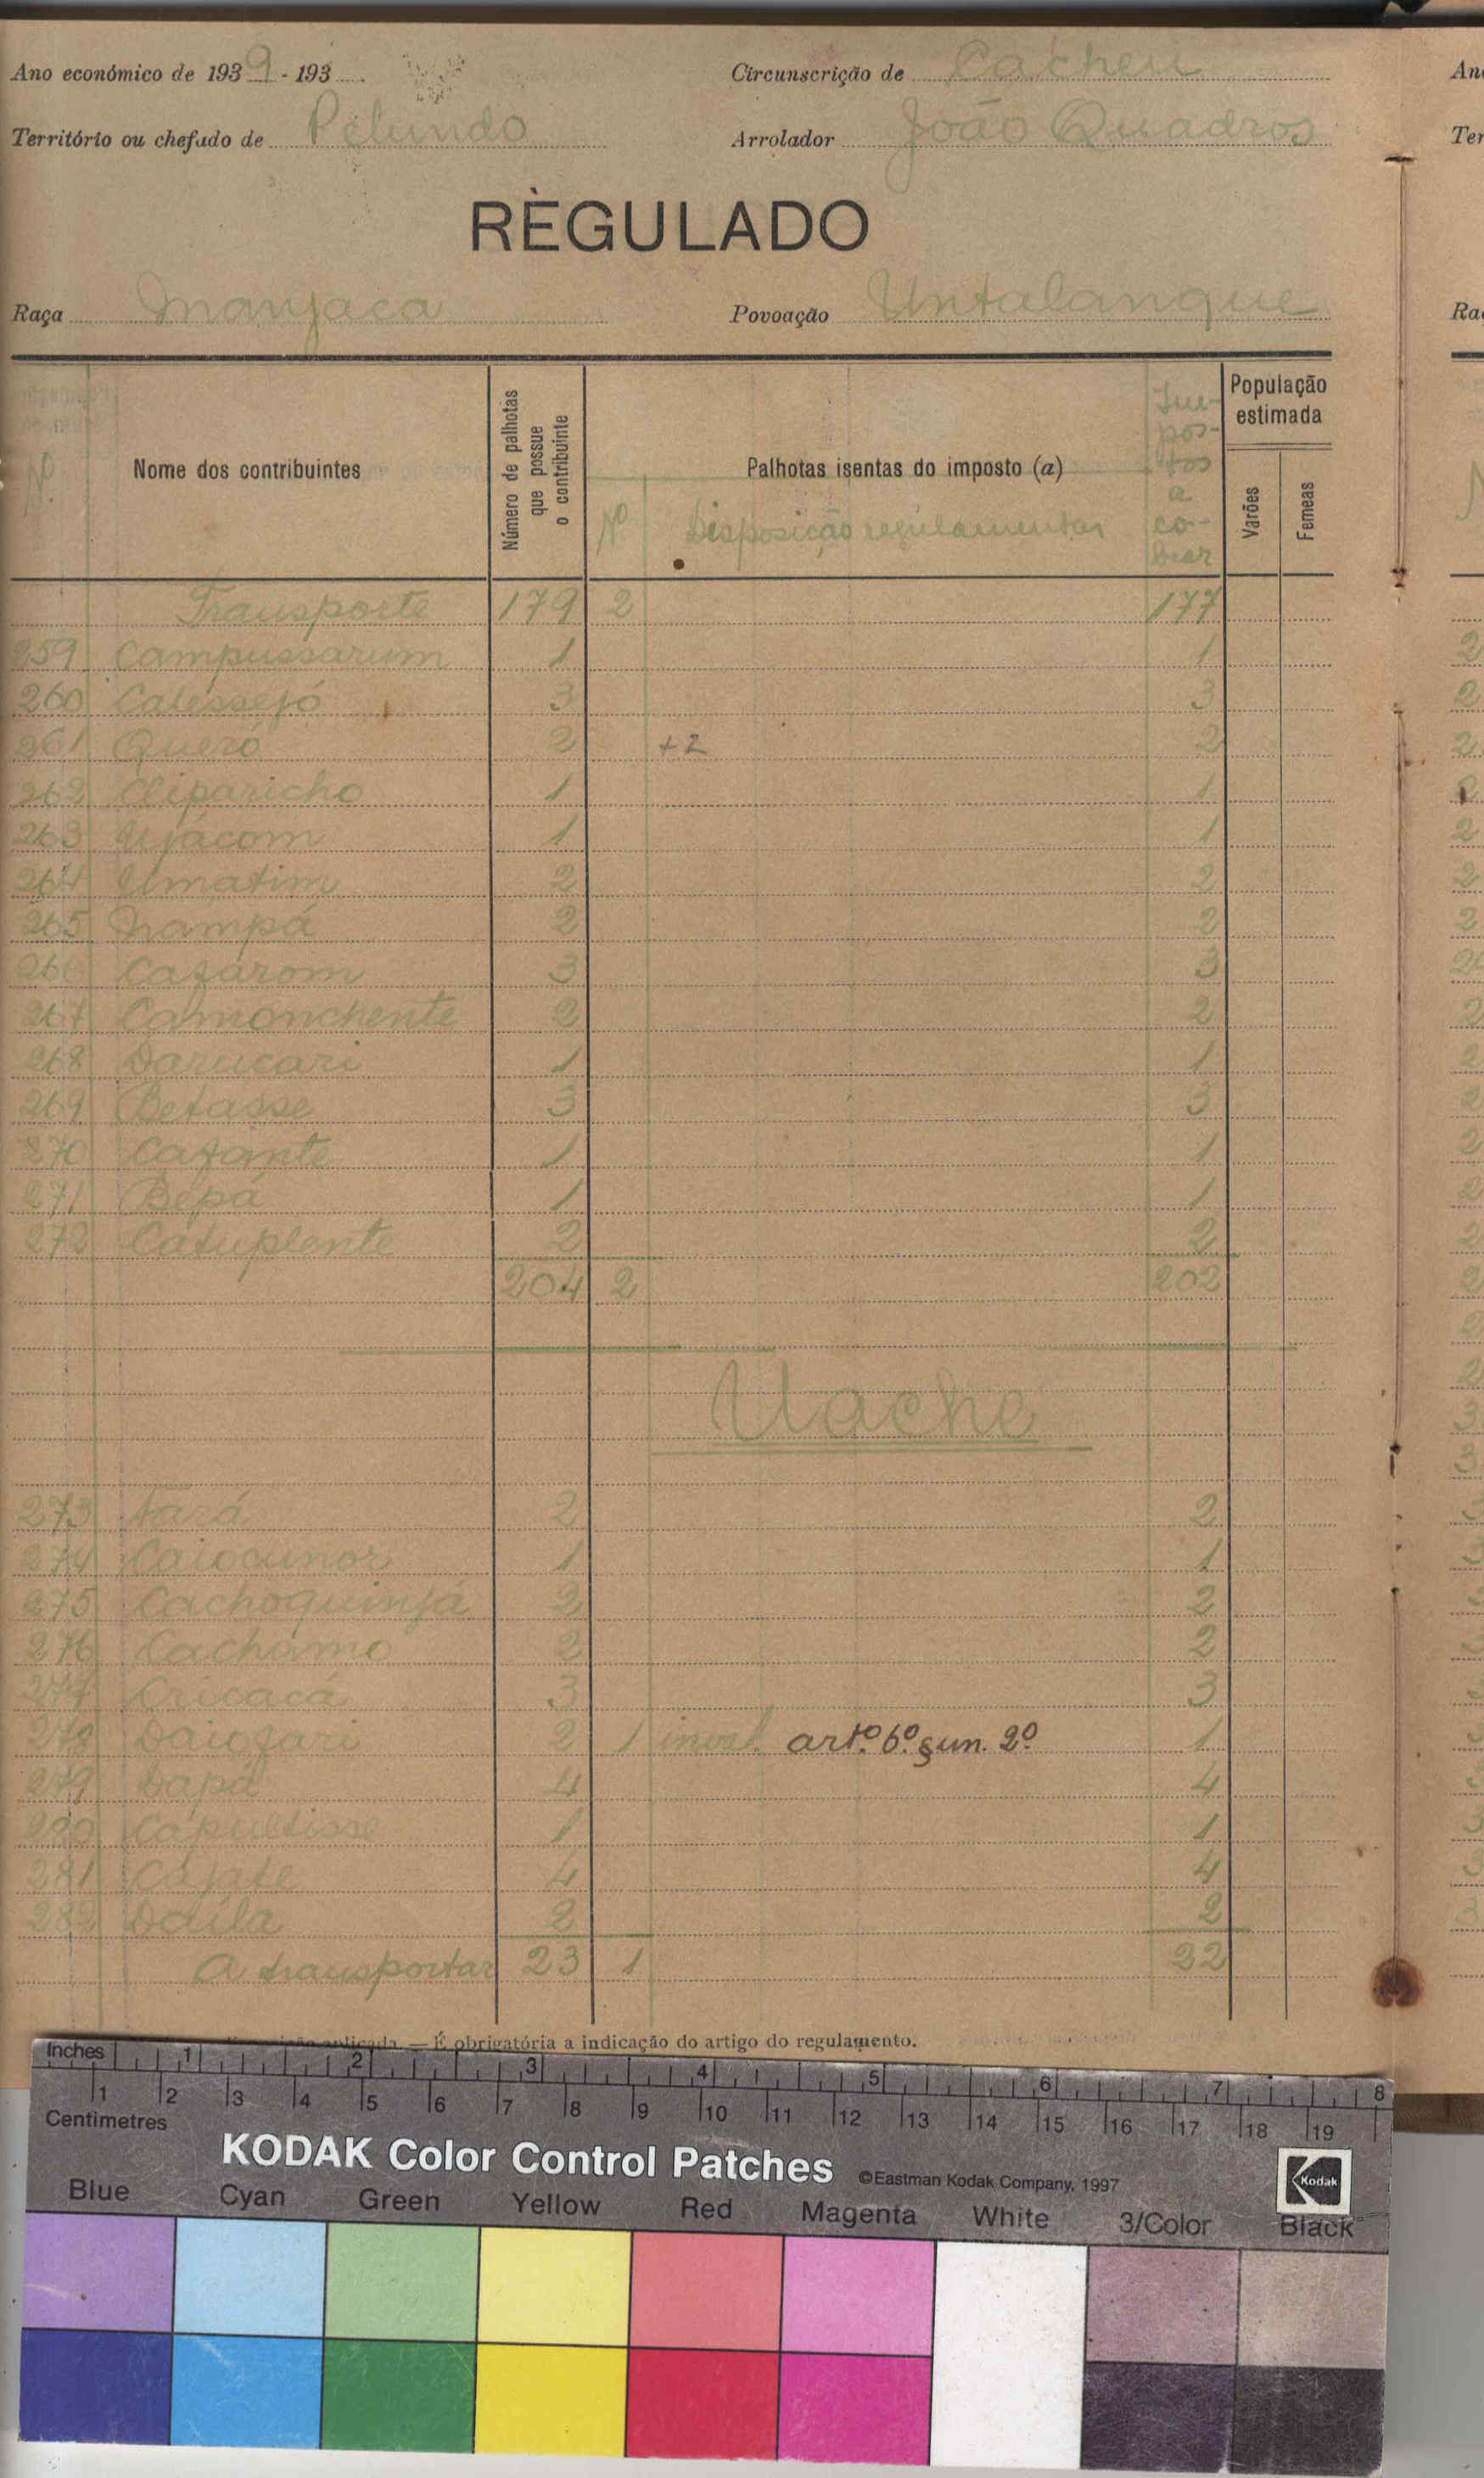 Ano económico de 1939 - 193
Circunscrição de Cacheu
Território ou chefado de Pelundo
Arrolador João Quadros
RÈGULADO
Raça Manjaca
Povoação Untalanque
Nº
Nome dos contribuintes
Número de palhotas que possue o contribuinte
Palhotas isentas do imposto (a)
Nº Disposição regulamentar
Impostos a cobrar
População estimada
Varões
Femeas
Transporte 179 2 177
259 Campussarum 1 1
260 Calessejó 3 3
261 Queró 2 +2 2
262 Cliparicho 1 1
263 Ujácom 1 1
264 Umatim 2 2
265 Nampá 2 2
266 Cafarom 3 3
267 Camonchente 2 2
268 Darucari 1 1
269 Betasse 3 3
270 Cafante 1 1
271 Bepá 1 1
272 Catuplente 2 2
204 2 202
Uache
273 Nazá 2 2
274 Caiocunor 1 1
275 Cachoquinjá 2 2
276 Cachamo 2 2
277 Cricacá 3 3
278 Daiofari 2 1 inval. artº. 6º. § un. 2º 1
279 Dapá 4 4
280 Capultisse 1 1
281 Cajate 4 4
282 Daíla 2 2
A transportar 23 1 22
aplicada. — É obrigatória a indicação do artigo do regulamento.
Inches 1 2 3 4 5 6 7 8
1 2 3 4 5 6 7 8 9 10 11 12 13 14 15 16 17 18 19
Centimetres
KODAK Color Control Patches ©Eastman Kodak Company, 1997
Kodak
Blue Cyan Green Yellow Red Magenta White 3/Color Black